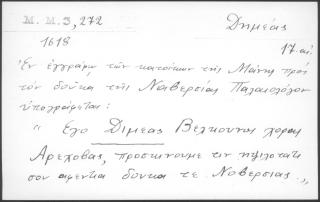 Μ. Μ. 3, 272
Δημέας
1618
17. αἰ
Ἐν ἐγγράφῳ τῶν κατοίκων τῆς Μάνης πρὸς
τὸν δοῦκα τῆς Ναβερσίας Παλαιολόγον
ὑπογράφεται:
" Εγο Διμεας Βελκουνης χορας
Αρεχοβας, προσκυνουμε τιν ηψιλοτατι
σου αφεντια δουκα τε Νοβερσιας „